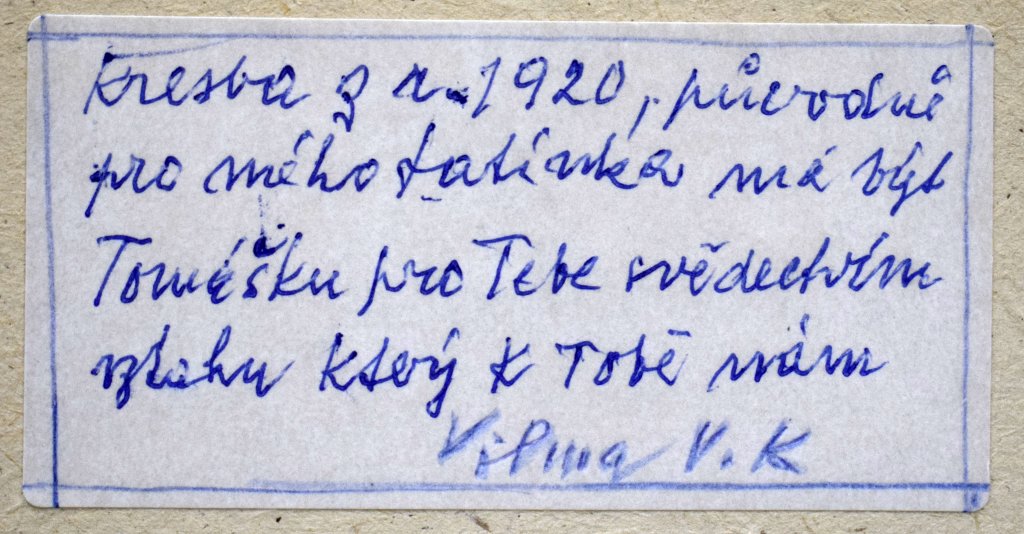 Kresba z r. 1920, původně
pro mého tatínka má být
Tomášku pro Tebe svědectvím
vztahu který k Tobě mám
Vilma V. K